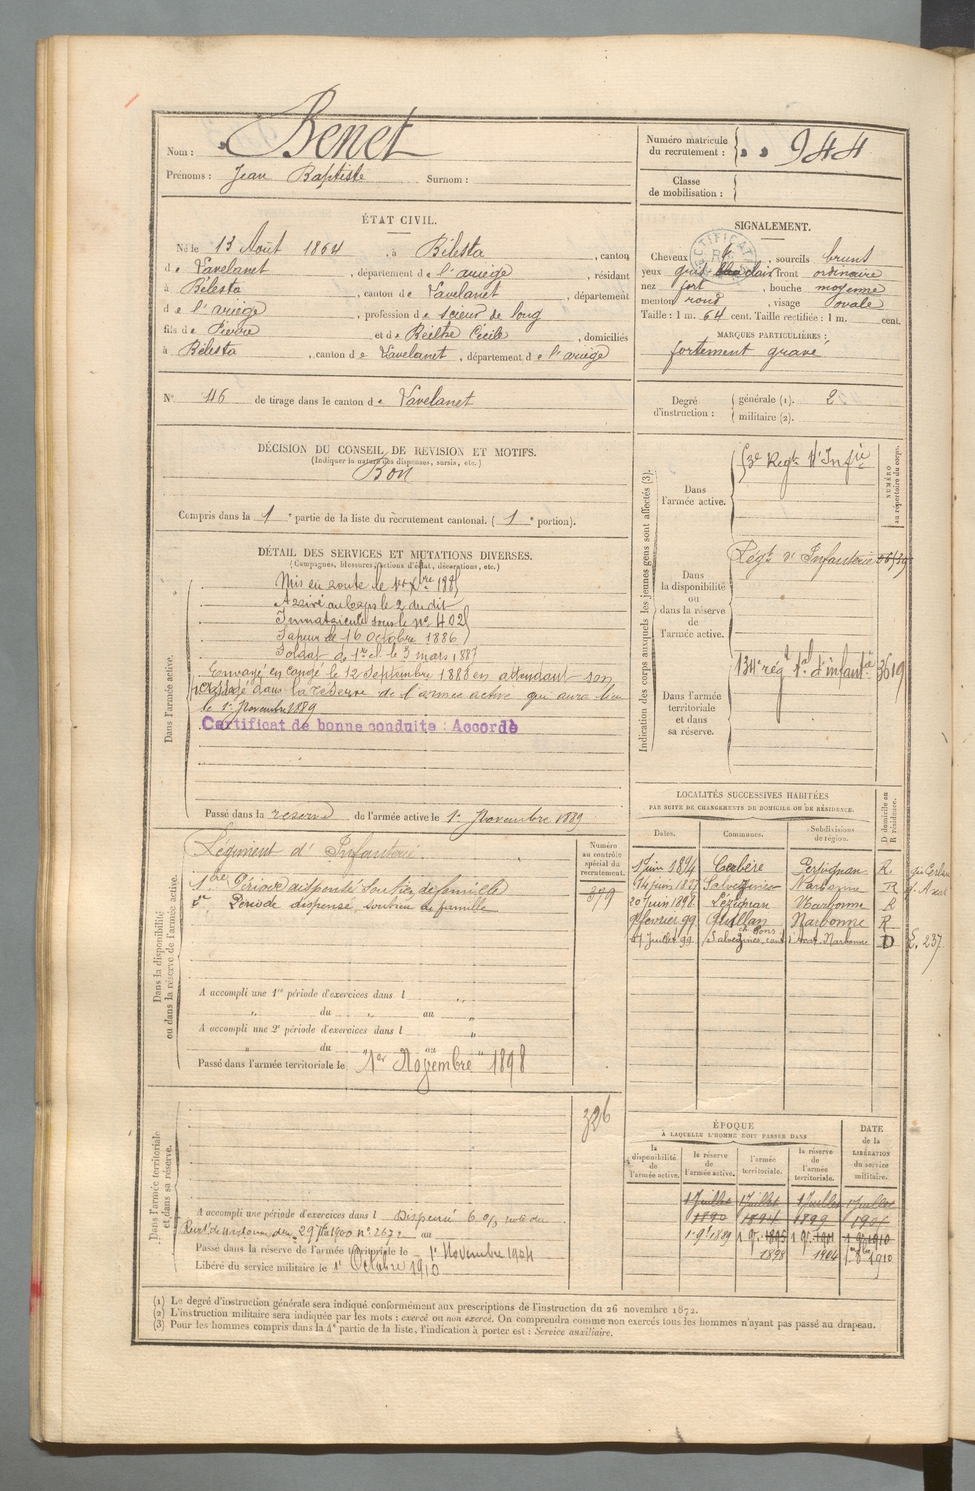 Nom : Benet
Prénoms : Jean Baptiste Surnom :
Numéro matricule du recrutement : 944
Classe de mobilisation :
ÉTAT CIVIL.
Né le 13 Août 1864, à Bélesta, canton
de Lavelanet, département de l'ariège, résidant
à Bélesta, canton de Lavelanet, département
de l'ariège, profession de scieur de long
fils de Pierre et de Cécile, domiciliés
à Bélesta, canton de Lavelanet, département de l'ariège
SIGNALEMENT.
Cheveux sourcils bruns
yeux gris clair front ordinaire
nez fort, bouche moyenne
menton rond, visage ovale
Taille : 1 m. 64 cent. Taille rectifiée : 1 m. cent.
MARQUES PARTICULIÈRES :
fortement gravé
N° 46 de tirage dans le canton de Lavelanet
Degré d'instruction : générale (1). 2
militaire (2).
DÉCISION DU CONSEIL DE REVISION ET MOTIFS.
(Indiquer la nature des dispenses, sursis, etc.)
Bon
Compris dans la 1e partie de la liste du recrutement cantonal. (1e portion).
DÉTAIL DES SERVICES ET MUTATIONS DIVERSES.
(Campagnes, blessures, actions d'éclat, décorations, etc.)
Dans l'armée active.
Mis en route le 1er Xbre 1885
Arrivé au Corps le 2 du dit
Immatriculé sous le n° 402
Sapeur le 16 Octobre 1886
Soldat de 1re cl. le 3 mars 1887
Envoyé en congé le 12 Septembre 1888 en attendant son
passage dans la réserve de l'armée active qui aura lieu
le 1er Novembre 1889
Certificat de bonne conduite : Accordé
Passé dans la réserve de l'armée active le 1er Novembre 1889
Indication des corps auxquels les jeunes gens sont affectés (3).
NUMÉRO au répertoire du corps.
Dans l'armée active.
Regt d'Infie
Dans la disponibilité ou dans la réserve de l'armée active.
Régt d'Infanterie
Dans l'armée territoriale et dans sa réserve.
134e régt tal d'infantie 3619
Dans la disponibilité ou dans la réserve de l'armée active.
Régiment d'Infanterie
Numéro au contrôle spécial du recrutement.
879
1ère Période dispensé Soutien de famille
2e Période dispensé, soutien de famille
A accompli une 1re période d'exercices dans l
du au
A accompli une 2e période d'exercices dans l
du au
Passé dans l'armée territoriale le 1er Novembre 1898
LOCALITÉS SUCCESSIVES HABITÉES
PAR SUITE DE CHANGEMENTS DE DOMICILE OU DE RÉSIDENCE.
Dates. Communes. Subdivisions de région. D domicile ou R résidence.
1 Juin 1894 Cerbère Perpignan R
Salvezines Narbonne R
20 Juin 1898 Lézignan Narbonne R
février 99 Quillan Narbonne R
Juillet 99 Salvezines Narbonne D
Dans l'armée territoriale et dans sa réserve.
326
A accompli une période d'exercices dans l Dispensé
du 1900 n° 2672 au
Passé dans la réserve de l'armée territoriale le 1er Novembre 1904
Libéré du service militaire le 1er Octobre 1910
ÉPOQUE
À LAQUELLE L'HOMME DOIT PASSER DANS
la disponibilité de l'armée active.
la réserve de l'armée active.
l'armée territoriale.
la réserve de l'armée territoriale.
DATE de la LIBÉRATION du service militaire.
1 Juillet 1 Juillet 1 Juillet 1 Juillet
1890 1894 1899
1898 1904 1910
(1) Le degré d'instruction générale sera indiqué conformément aux prescriptions de l'instruction du 26 novembre 1872.
(2) L'instruction militaire sera indiquée par les mots : exercé ou non exercé. On comprendra comme non exercés tous les hommes n'ayant pas passé au drapeau.
(3) Pour les hommes compris dans la 4e partie de la liste, l'indication à porter est : Service auxiliaire.